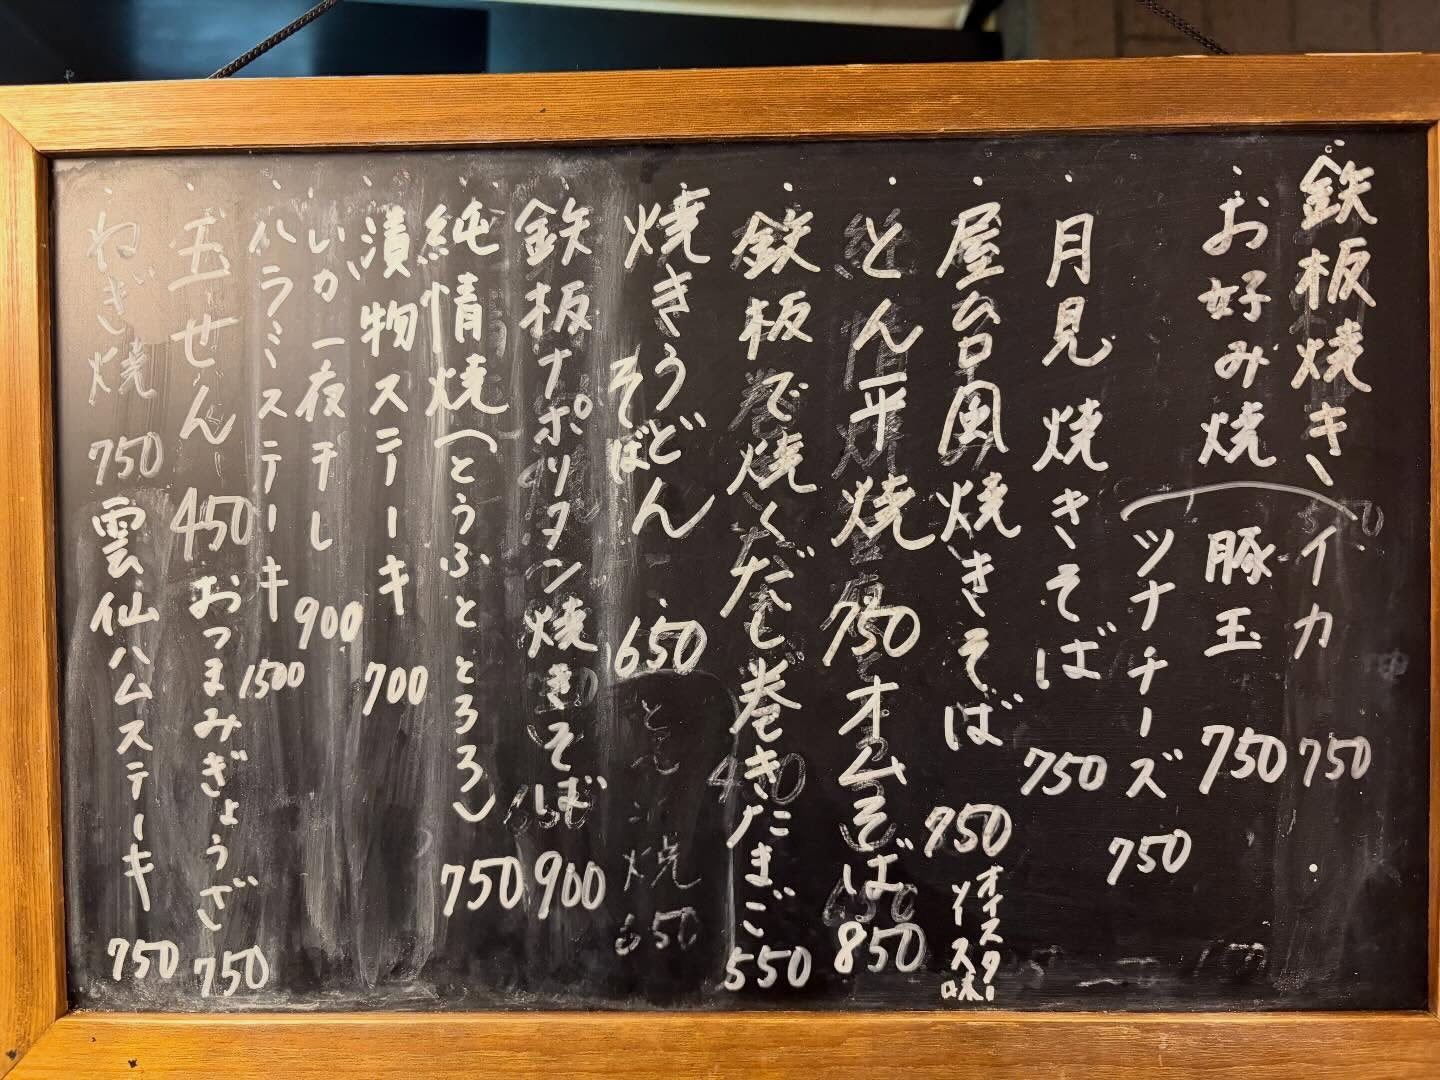 ・鉄板焼き、イカ 750
・お好み焼(豚玉 750
ツナチーズ 750
・月見焼きそば 750
・屋台風焼きそば 750 オイスターソース味
・とん平焼 750 オムそば 850
・鉄板で焼くだし巻きたまご 550
・焼きうどん 650
そば
・鉄板ナポリタン焼きそば 900
・純情焼(とうふととろろ) 750
・漬物ステーキ 700
・いか一夜干し 900
・ハラミステーキ 1500
・玉せん 450 おつまみぎょうざ 750
・ねぎ焼 750 雲仙ハムステーキ 750